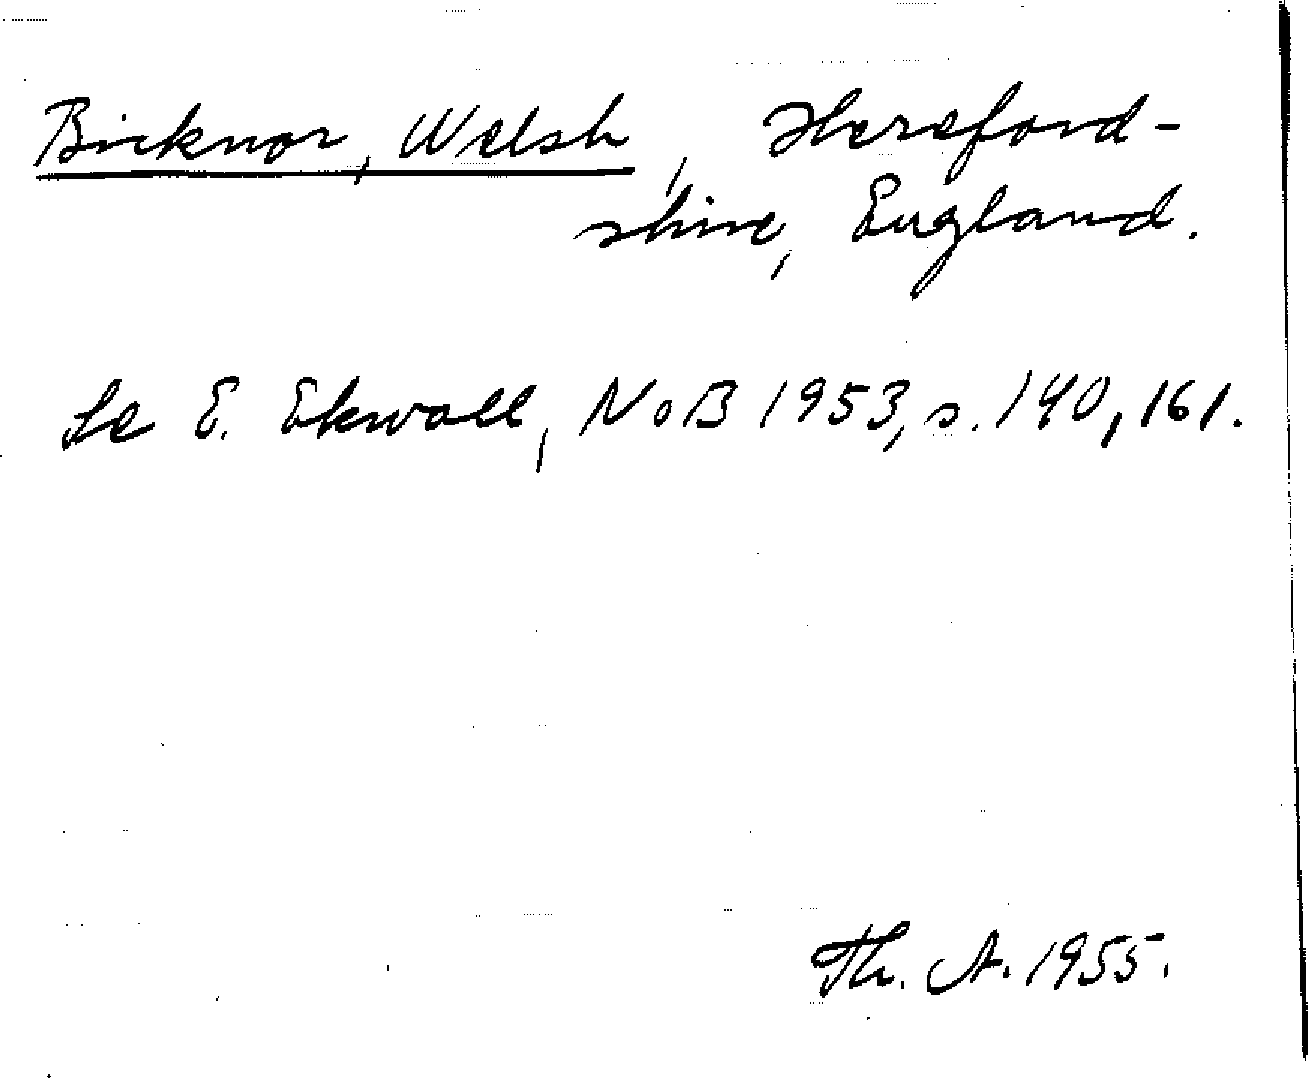 Bicknor, Welsh, Hereford-
shire, England.
Se E. Ekwall, NoB 1953, s. 140, 161.
Th. A. 1955.